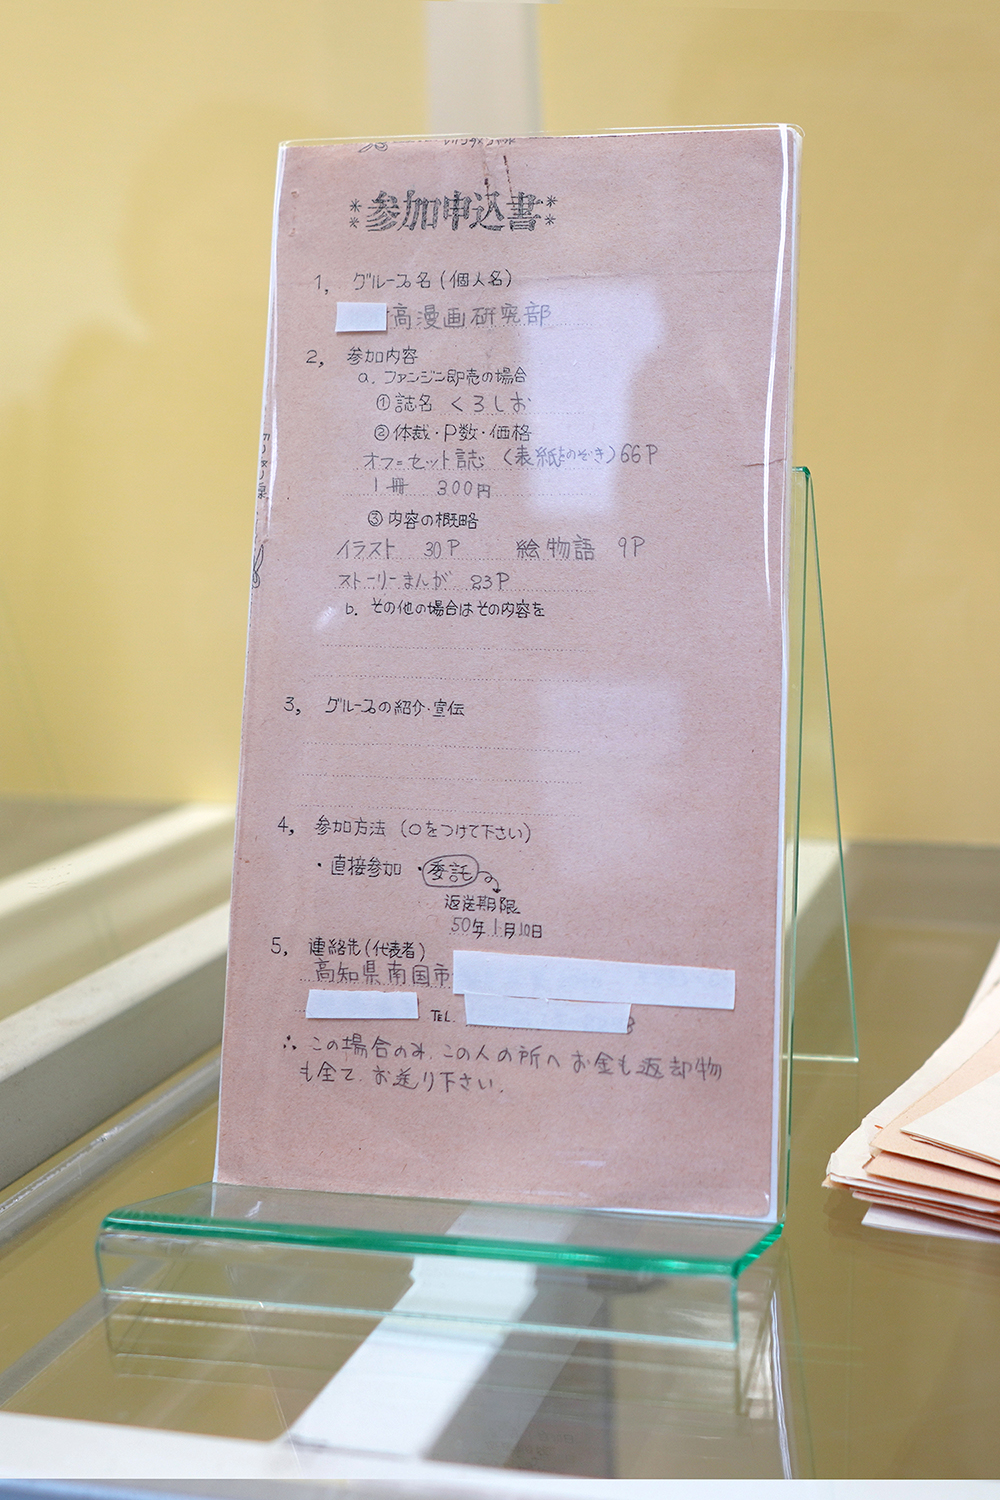 ＊＊参加申込書＊＊
1, グループ名(個人名)
高漫画研究部
2, 参加内容
a. ファンジン即売の場合
①誌名 くろしお
②体裁・P数・価格
オフセット誌 (表紙をのぞき)66P
1冊 300円
③内容の概略
イラスト 30P 絵物語 9P
ストーリーまんが 23P
b. その他の場合はその内容を
3, グループの紹介・宣伝
4, 参加方法 (○をつけて下さい)
・直接参加 ・委託
返送期限
50年1月10日
5, 連絡先(代表者)
高知県南国市
TEL.
∴この場合のみ、この人の所へお金も返却物
も全て、お送り下さい.